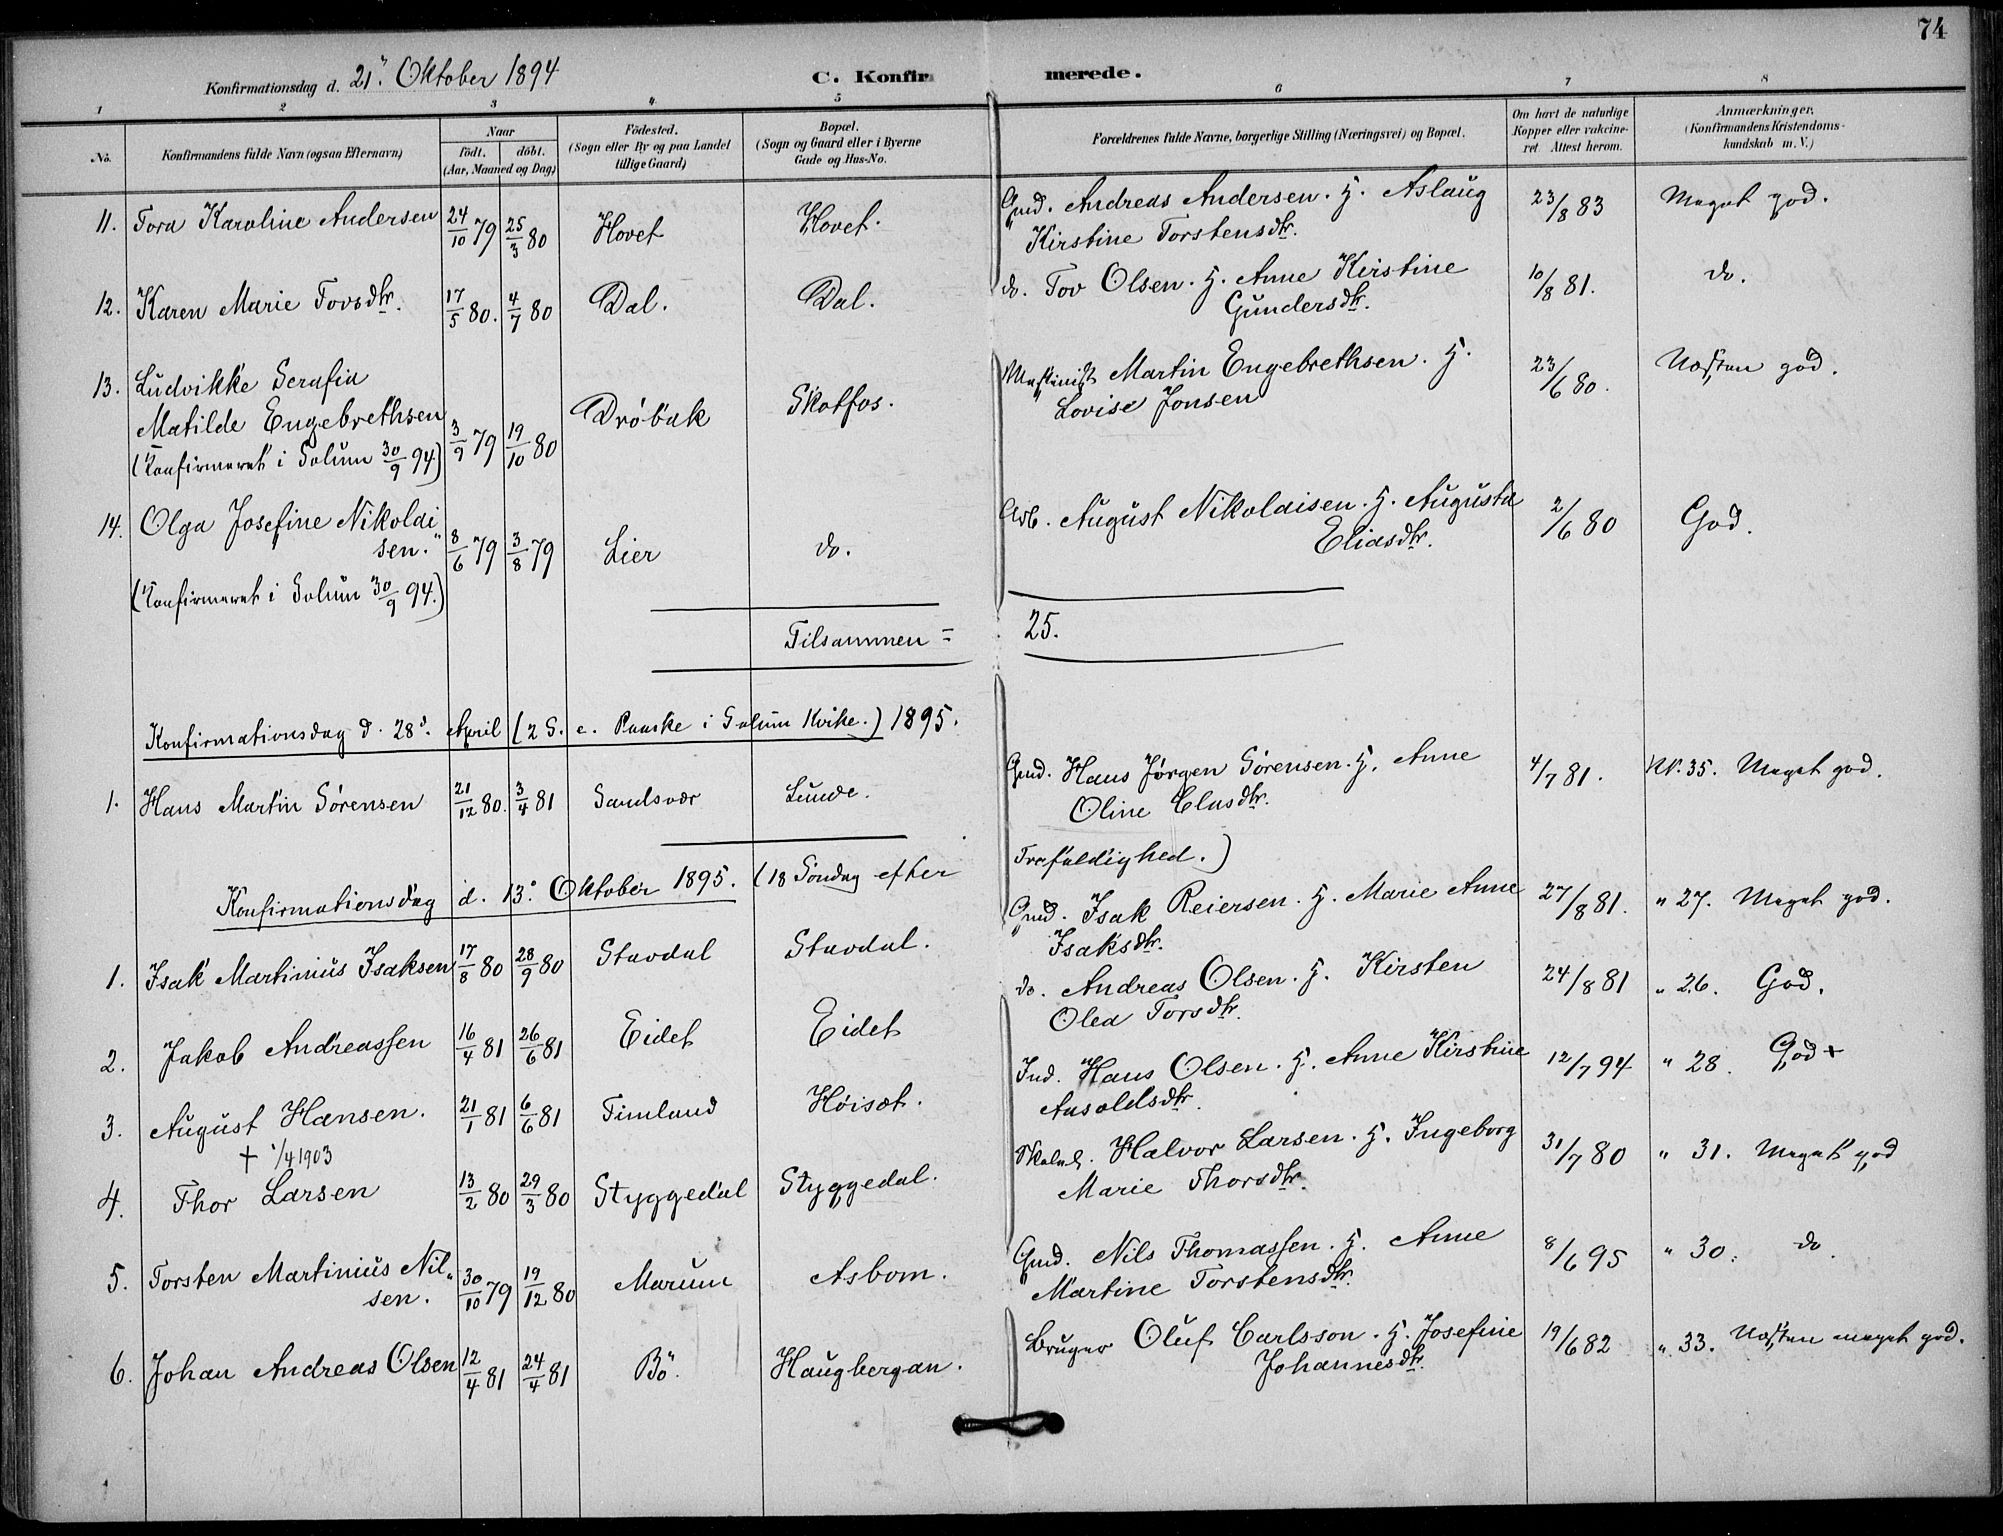 74
Konfirmationsdag d. 21" Oktober 1894 C. Konfirmerede.
1 2 3 4 5 6 7 8
No. Konfirmandens fulde Navn (ogsaa Efternavn) Naar födt. döbt. (Aar, Maaned og Dag) Födested. (Sogn eller By og paa Landet tillige Gaard) Bopæl. (Sogn og Gaard eller i Byerne Gade og Hus-No. Forældrenes fulde Navne, borgerlige Stilling (Næringsvei) og Bopæl. Om havt de naturlige Kopper eller vaccineret. Attest herom. Anmærkninger. (Konfirmandens Kristendomskundskab m. V.)
11. Tora Karoline Andersen 24/10 79 25/3 80 Hovet Hovet. Gmd. Andreas Andersen. H. Aslaug 23/8 83 Meget god.
Kirstine Torstensdtr.
12. Karen Marie Tovsdtr. 17/5 80. 4/7 80 Dal. Dal. do. Tov Olsen. H. Anne Kirstine 10/8 81. do.
Gundersdtr.
13. Ludvikke Serafia Maskinist Martin Engebrethsen. H. 23/6 80. Næsten god.
Matilde Engebrethsen 3/9 79 19/10 80 Dröbak Skotfos. Lovise Jonsen
(Konfirmeret i Solum 30/9 94)
14. Olga Josefine Nikolai- Arb. August Nikolaisen. H. Augusta 2/6 80 God.
sen." 8/6 79 3/8 79 Lier do. Eliasdtr.
(Konfirmeret i Solum 30/9 94.)
Tilsammen = 25.
Konfirmationsdag d. 28d. April (2 S. e. Paaske i Solum Kirke.) 1895.
1. Hans Martin Sörensen 21/12 80. 3/4 81 Sandsvær Lunde. Gmd. Hans Jørgen Sörensen. H. Anne 4/7 81. Kl. 35. Meget god.
Oline Clasdtr.
Konfirmationsdag d. 13. Oktober 1895. (18 Söndag efter Trefoldighed.)
1. Isak Martinius Isaksen 17/8 80 28/9 80 Stavdal Stavdal. Gmd. Isak Reiersen. H. Marie Anne 27/8 81. " 27. Meget god.
Isaksdtr.
2. Jakob Andreassen 16/4 81 26/6 81 Eidet Eidet do. Andreas Olsen. H. Kirsten 24/8 81 " 26. God.
Olea Torsdtr.
3. August Hansen. 21/1 81 6/6 81 Timland Höisæt. Ind. Hans Olsen. H. Anne Kirstine 12/7 94 " 28. God +
+ 1/4 1903 Ansoldsdtr.
4. Thor Larsen 13/2 80 29/3 80 Styggedal Styggedal. Halvor Larsen. H. Ingeborg 31/7 80 " 31. Meget god
Marie Thorsdtr.
5. Torsten Martinius Nil- 30/10 79 19/12 80 Marum Asbom. Gmd. Nils Thomassen. H. Anne 8/6 95 " 30. do.
sen. Martine Torstensdtr.
6. Johan Andreas Olsen 12/4 81 24/4 81 Bö. Haugbergan. Bruger Oluf Carlsson. H. Josefine 19/6 82 " 33. Næsten meget god.
Johannesdtr.